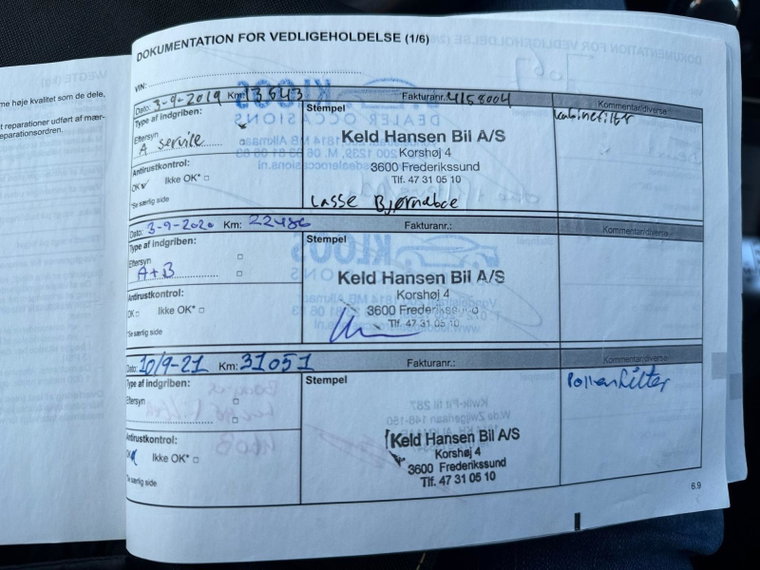 DOKUMENTATION FOR VEDLIGEHOLDELSE (1/6)
VIN:
Dato: 3-9-2019 Km: 13643 Fakturanr. 4158004 Kommentar/diverse
Type af indgriben: Stempel Kabinefilter
Eftersyn
A service
Keld Hansen Bil A/S
Korshøj 4
3600 Frederikssund
Tlf. 47 31 05 10
Antirustkontrol:
OK Ikke OK*
*Se særlig side
Lasse
Dato: 3-9-2020 Km: 22486 Fakturanr.: Kommentar/diverse
Type af indgriben: Stempel
Eftersyn
A+B
Keld Hansen Bil A/S
Korshøj 4
3600 Frederikssund
Tlf. 47 31 05 10
Antirustkontrol:
OK Ikke OK*
*Se særlig side
Dato: 10/9-21 Km: 31051 Fakturanr.: Kommentar/diverse
Type af indgriben: Stempel Pollenfilter
Eftersyn
Keld Hansen Bil A/S
Korshøj 4
3600 Frederikssund
Tlf. 47 31 05 10
Antirustkontrol:
OK Ikke OK*
*Se særlig side
6.9
me høje kvalitet som de dele,
t reparationer udført af mær-
eparationsordren.